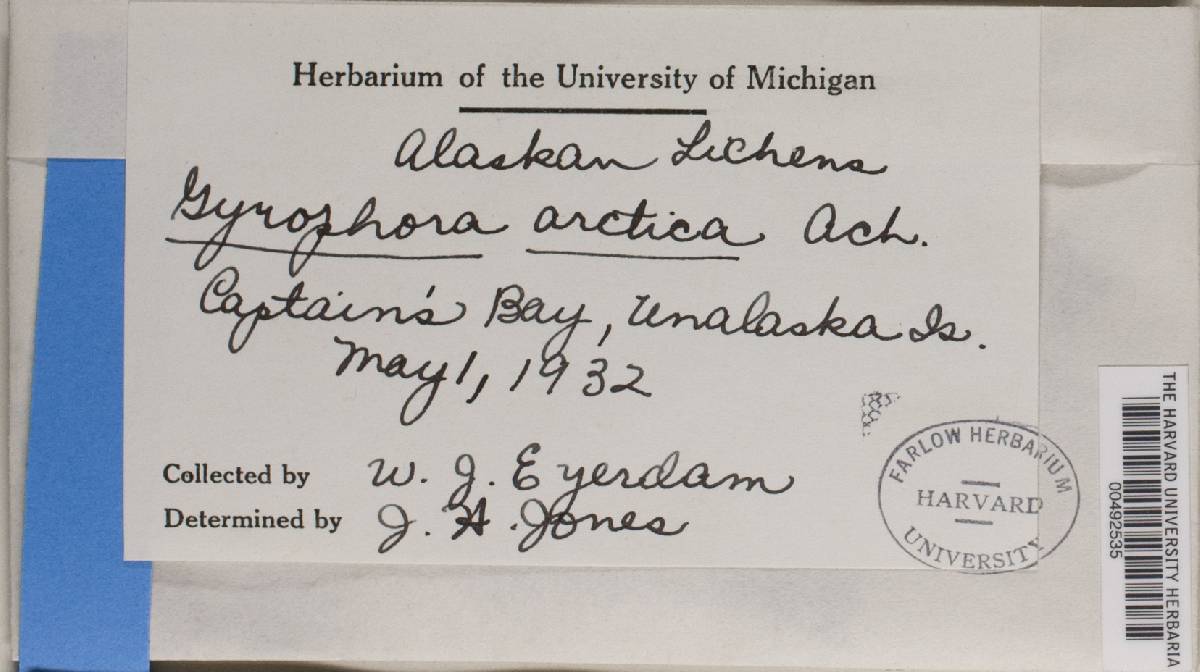 Herbarium of the University of Michigan
Alaskan Lichens
Gyrophora arctica Ach.
Captain's Bay, Unalaska Is.
May 1, 1932
Collected by W. J. Eyerdam
Determined by J. H. Jones
FARLOW HERBARIUM
HARVARD
UNIVERSITY
THE HARVARD UNIVERSITY HERBARIA
00492535